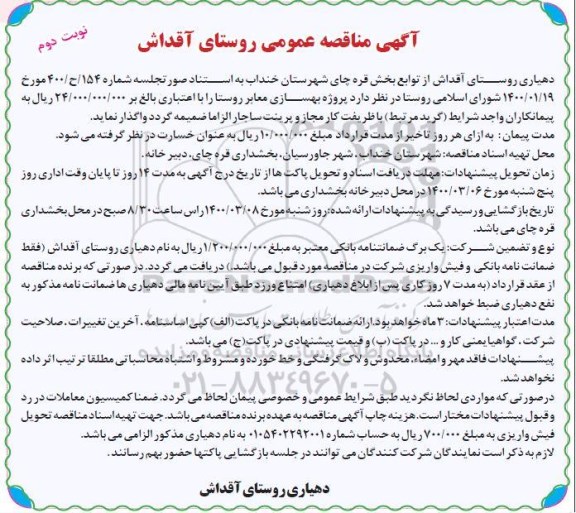 آگهی مناقصه عمومی روستای آقداش
نوبت دوم
دهیاری روستای آقداش از توابع بخش قره چای شهرستان خنداب به استناد صورتجلسه شماره ۱۵۴/ح/۴۰۰ مورخ
۱۴۰۰/۰۱/۱۹ شورای اسلامی روستا در نظر دارد پروژه بهسازی معابر روستا را با اعتباری بالغ بر ۲۴/۰۰۰/۰۰۰/۰۰۰ ریال به
پیمانکاران واجد شرایط (گرید مرتبط) با ظرفیت کار مجاز و پرینت ساجار الزاما ضمیمه گردد واگذار نماید.
مدت پیمان: به ازای هر روز تاخیر از مدت قرارداد مبلغ ۱۰/۰۰۰/۰۰۰ ریال به عنوان خسارت در نظر گرفته می شود.
محل تهیه اسناد مناقصه: شهرستان خنداب، شهر جاورسیان، بخشداری قره چای، دبیر خانه.
زمان تحویل پیشنهادات: مهلت دریافت اسناد و تحویل پاکت ها از تاریخ درج آگهی به مدت ۱۴ روز تا پایان وقت اداری روز
پنج شنبه مورخ ۱۴۰۰/۰۳/۰۶ در محل دبیرخانه بخشداری می باشد.
تاریخ بازگشایی و رسیدگی به پیشنهادات ارائه شده: روز شنبه مورخ ۱۴۰۰/۰۳/۰۸ راس ساعت ۸/۳۰ صبح در محل بخشداری
قره چای می باشد.
نوع و تضمین شرکت: یک برگ ضمانتنامه بانکی معتبر به مبلغ ۱/۲۰۰/۰۰۰/۰۰۰ ریال به نام دهیاری روستای آقداش (فقط
ضمانت نامه بانکی و فیش واریزی شرکت در مناقصه مورد قبول می باشد.) دریافت می گردد. در صورتی که برنده مناقصه
از عقد قرارداد (به مدت ۷ روز کاری پس از ابلاغ دهیاری) امتناع ورزد طبق آیین نامه مالی دهیاری ها ضمانت نامه مذکور به
نفع دهیاری ضبط خواهد شد.
مدت اعتبار پیشنهادات: ۳ ماه خواهد بود. ارائه ضمانت نامه بانکی در پاکت (الف) کپی اساسنامه، آخرین تغییرات، صلاحیت
شرکت، گواهی ایمنی کار و ... در پاکت (ب) و قیمت پیشنهادی در پاکت (ج) می باشد.
پیشنهادات فاقد مهر و امضاء، مخدوش و لاک گرفتگی و خط خورده و مشروط و اشتباه محاسباتی مطلقا ترتیب اثر داده
نخواهد شد.
در صورتی که مواردی لحاظ نگردید طبق شرایط عمومی و خصوصی پیمان لحاظ می گردد. ضمنا کمیسیون معاملات در رد
و قبول پیشنهادات مختار است. هزینه چاپ آگهی مناقصه به عهده برنده مناقصه می باشد. جهت تهیه اسناد مناقصه تحویل
فیش واریزی به مبلغ ۷۰۰/۰۰۰ ریال به حساب شماره ۰۱۰۵۴۰۲۲۹۲۰۰۱ به نام دهیاری مذکور الزامی می باشد.
لازم به ذکر است نمایندگان شرکت کنندگان می توانند در جلسه بازگشایی پاکتها حضور بهم رسانند.
دهیاری روستای آقداش
۰۲۱-۸۸۳۴۹۶۷۰-۵